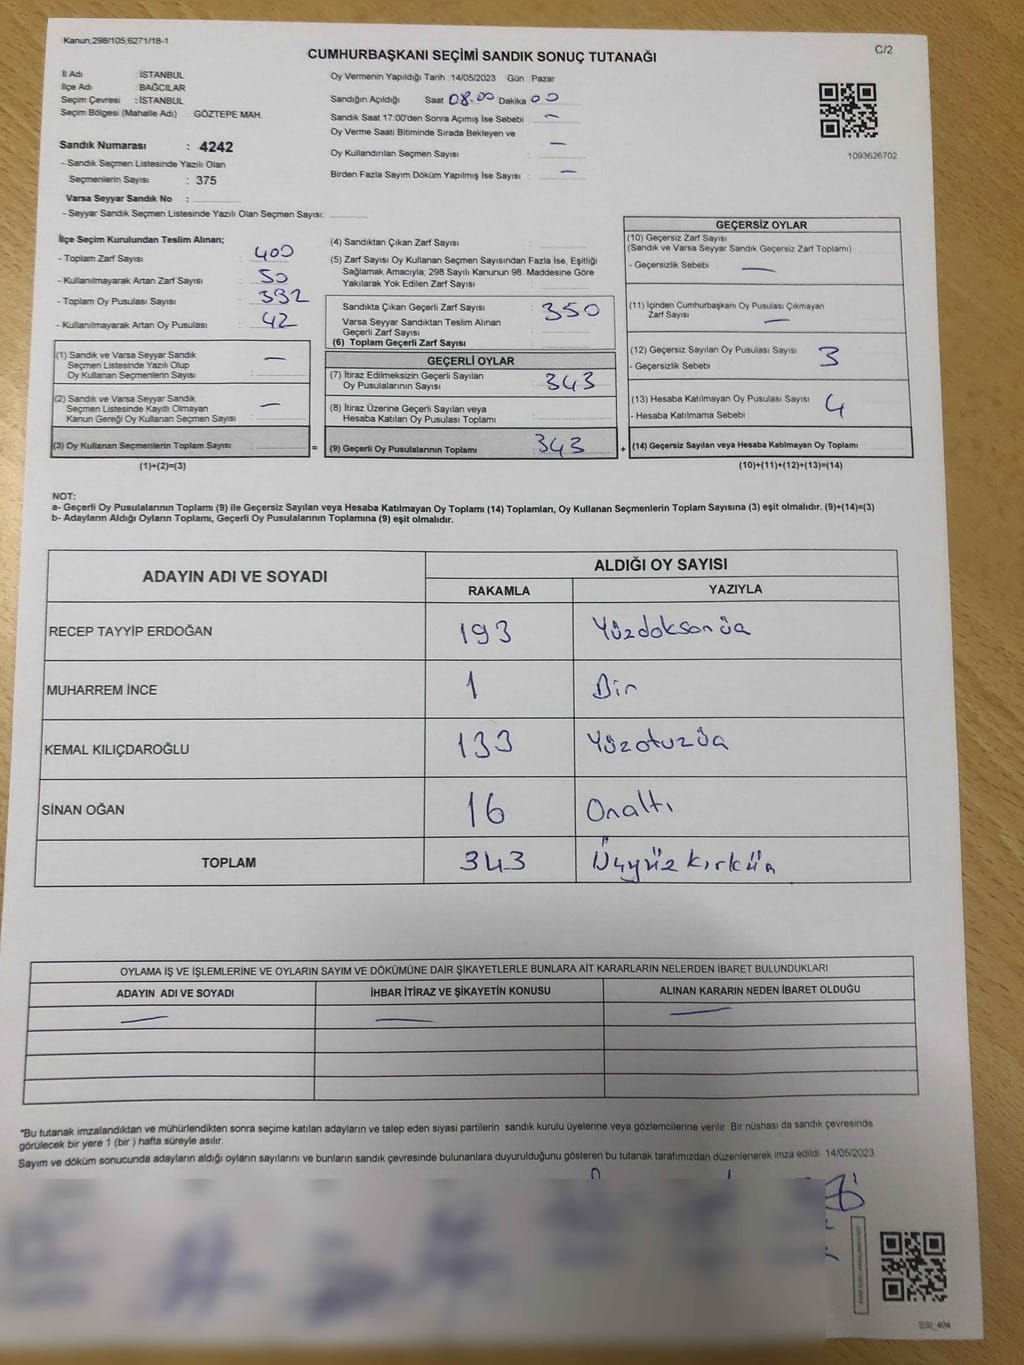 Kanun;298/105,6271/18-1
C/2
CUMHURBAŞKANI SEÇİMİ SANDIK SONUÇ TUTANAĞI
İl Adı : İSTANBUL
İlçe Adı : BAĞCILAR
Seçim Çevresi : İSTANBUL
Seçim Bölgesi (Mahalle Adı) : GÖZTEPE MAH.
Sandık Numarası : 4242
- Sandık Seçmen Listesinde Yazılı Olan
Seçmenlerin Sayısı : 375
Varsa Seyyar Sandık No :
- Seyyar Sandık Seçmen Listesinde Yazılı Olan Seçmen Sayısı:
Oy Vermenin Yapıldığı Tarih : 14/05/2023 Gün : Pazar
Sandığın Açıldığı Saat 08.00 Dakika 00
Sandık Saat 17:00'den Sonra Açımış İse Sebebi : —
Oy Verme Saati Bitiminde Sırada Bekleyen ve
Oy Kullandırılan Seçmen Sayısı : —
Birden Fazla Sayım Döküm Yapılmış İse Sayısı : —
1093626702
İlçe Seçim Kurulundan Teslim Alınan;
- Toplam Zarf Sayısı : 400
- Kullanılmayarak Artan Zarf Sayısı : 50
- Toplam Oy Pusulası Sayısı : 392
- Kullanılmayarak Artan Oy Pusulası : 42
(1) Sandık ve Varsa Seyyar Sandık
Seçmen Listesinde Yazılı Olup
Oy Kullanan Seçmenlerin Sayısı : —
(2) Sandık ve Varsa Seyyar Sandık
Seçmen Listesinde Kayıtlı Olmayan
Kanun Gereği Oy Kullanan Seçmen Sayısı : —
(3) Oy Kullanan Seçmenlerin Toplam Sayısı : =
(1)+(2)=(3)
(4) Sandıktan Çıkan Zarf Sayısı :
(5) Zarf Sayısı Oy Kullanan Seçmen Sayısından Fazla İse, Eşitliği
Sağlamak Amacıyla; 298 Sayılı Kanunun 98. Maddesine Göre
Yakılarak Yok Edilen Zarf Sayısı :
Sandıkta Çıkan Geçerli Zarf Sayısı : 350
Varsa Seyyar Sandıktan Teslim Alınan
Geçerli Zarf Sayısı :
(6) Toplam Geçerli Zarf Sayısı :
GEÇERLİ OYLAR
(7) İtiraz Edilmeksizin Geçerli Sayılan
Oy Pusulalarının Sayısı : 343
(8) İtiraz Üzerine Geçerli Sayılan veya
Hesaba Katılan Oy Pusulası Toplamı :
(9) Geçerli Oy Pusulalarının Toplamı : 343 +
GEÇERSİZ OYLAR
(10) Geçersiz Zarf Sayısı
(Sandık ve Varsa Seyyar Sandık Geçersiz Zarf Toplamı)
- Geçersizlik Sebebi : —
(11) İçinden Cumhurbaşkanı Oy Pusulası Çıkmayan
Zarf Sayısı : —
(12) Geçersiz Sayılan Oy Pusulası Sayısı : 3
- Geçersizlik Sebebi :
(13) Hesaba Katılmayan Oy Pusulası Sayısı : 4
- Hesaba Katılmama Sebebi :
(14) Geçersiz Sayılan veya Hesaba Katılmayan Oy Toplamı :
(10)+(11)+(12)+(13)=(14)
NOT:
a- Geçerli Oy Pusulalarının Toplamı (9) ile Geçersiz Sayılan veya Hesaba Katılmayan Oy Toplamı (14) Toplamları, Oy Kullanan Seçmenlerin Toplam Sayısına (3) eşit olmalıdır. (9)+(14)=(3)
b- Adayların Aldığı Oyların Toplamı, Geçerli Oy Pusulalarının Toplamına (9) eşit olmalıdır.
ADAYIN ADI VE SOYADI
ALDIĞI OY SAYISI
RAKAMLA YAZIYLA
RECEP TAYYİP ERDOĞAN 193 Yüzdoksanüç
MUHARREM İNCE 1 Bir
KEMAL KILIÇDAROĞLU 133 Yüzotuzüç
SİNAN OĞAN 16 Onaltı
TOPLAM 343 Üçyüzkırküç
OYLAMA İŞ VE İŞLEMLERİNE VE OYLARIN SAYIM VE DÖKÜMÜNE DAİR ŞİKAYETLERLE BUNLARA AİT KARARLARIN NELERDEN İBARET BULUNDUKLARI
ADAYIN ADI VE SOYADI İHBAR İTİRAZ VE ŞİKAYETİN KONUSU ALINAN KARARIN NEDEN İBARET OLDUĞU
— — —
*Bu tutanak imzalandıktan ve mühürlendikten sonra seçime katılan adayların ve talep eden siyasi partilerin sandık kurulu üyelerine veya gözlemcilerine verilir. Bir nüshası da sandık çevresinde
görülecek bir yere 1 (bir ) hafta süreyle asılır.
Sayım ve döküm sonucunda adayların aldığı oyların sayılarını ve bunların sandık çevresinde bulunanlara duyurulduğunu gösteren bu tutanak tarafımızdan düzenlenerek imza edildi. 14/05/2023